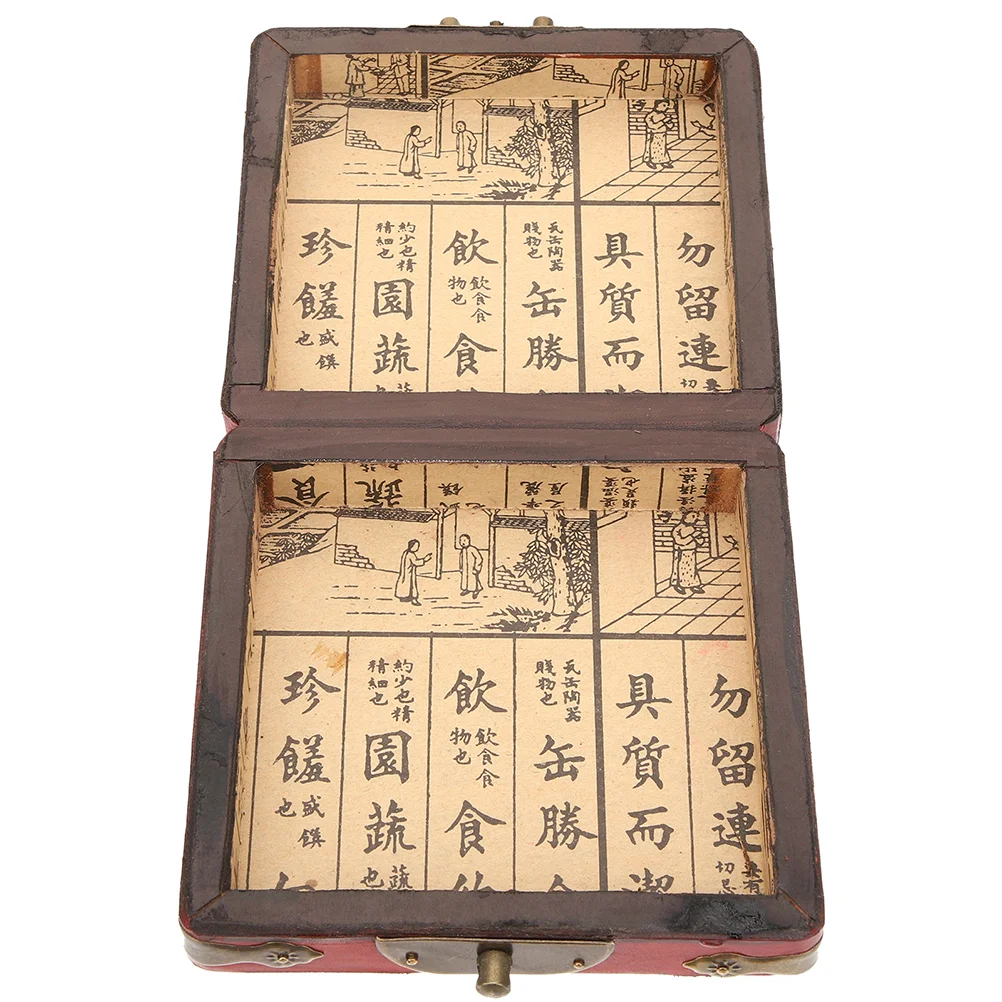 勿留連
具質而潔
瓦缶陶器
賤物也
缶勝
飲
飲食食
物也
食
約少也精
精細也
園蔬
珍饈
盛饌
也
食
蔬
勿留連
切忌
具質而潔
瓦缶陶器
賤物也
缶勝
飲
飲食食
物也
食約
約少也精
精細也
園蔬
蔬
也
珍饈
盛饌
也